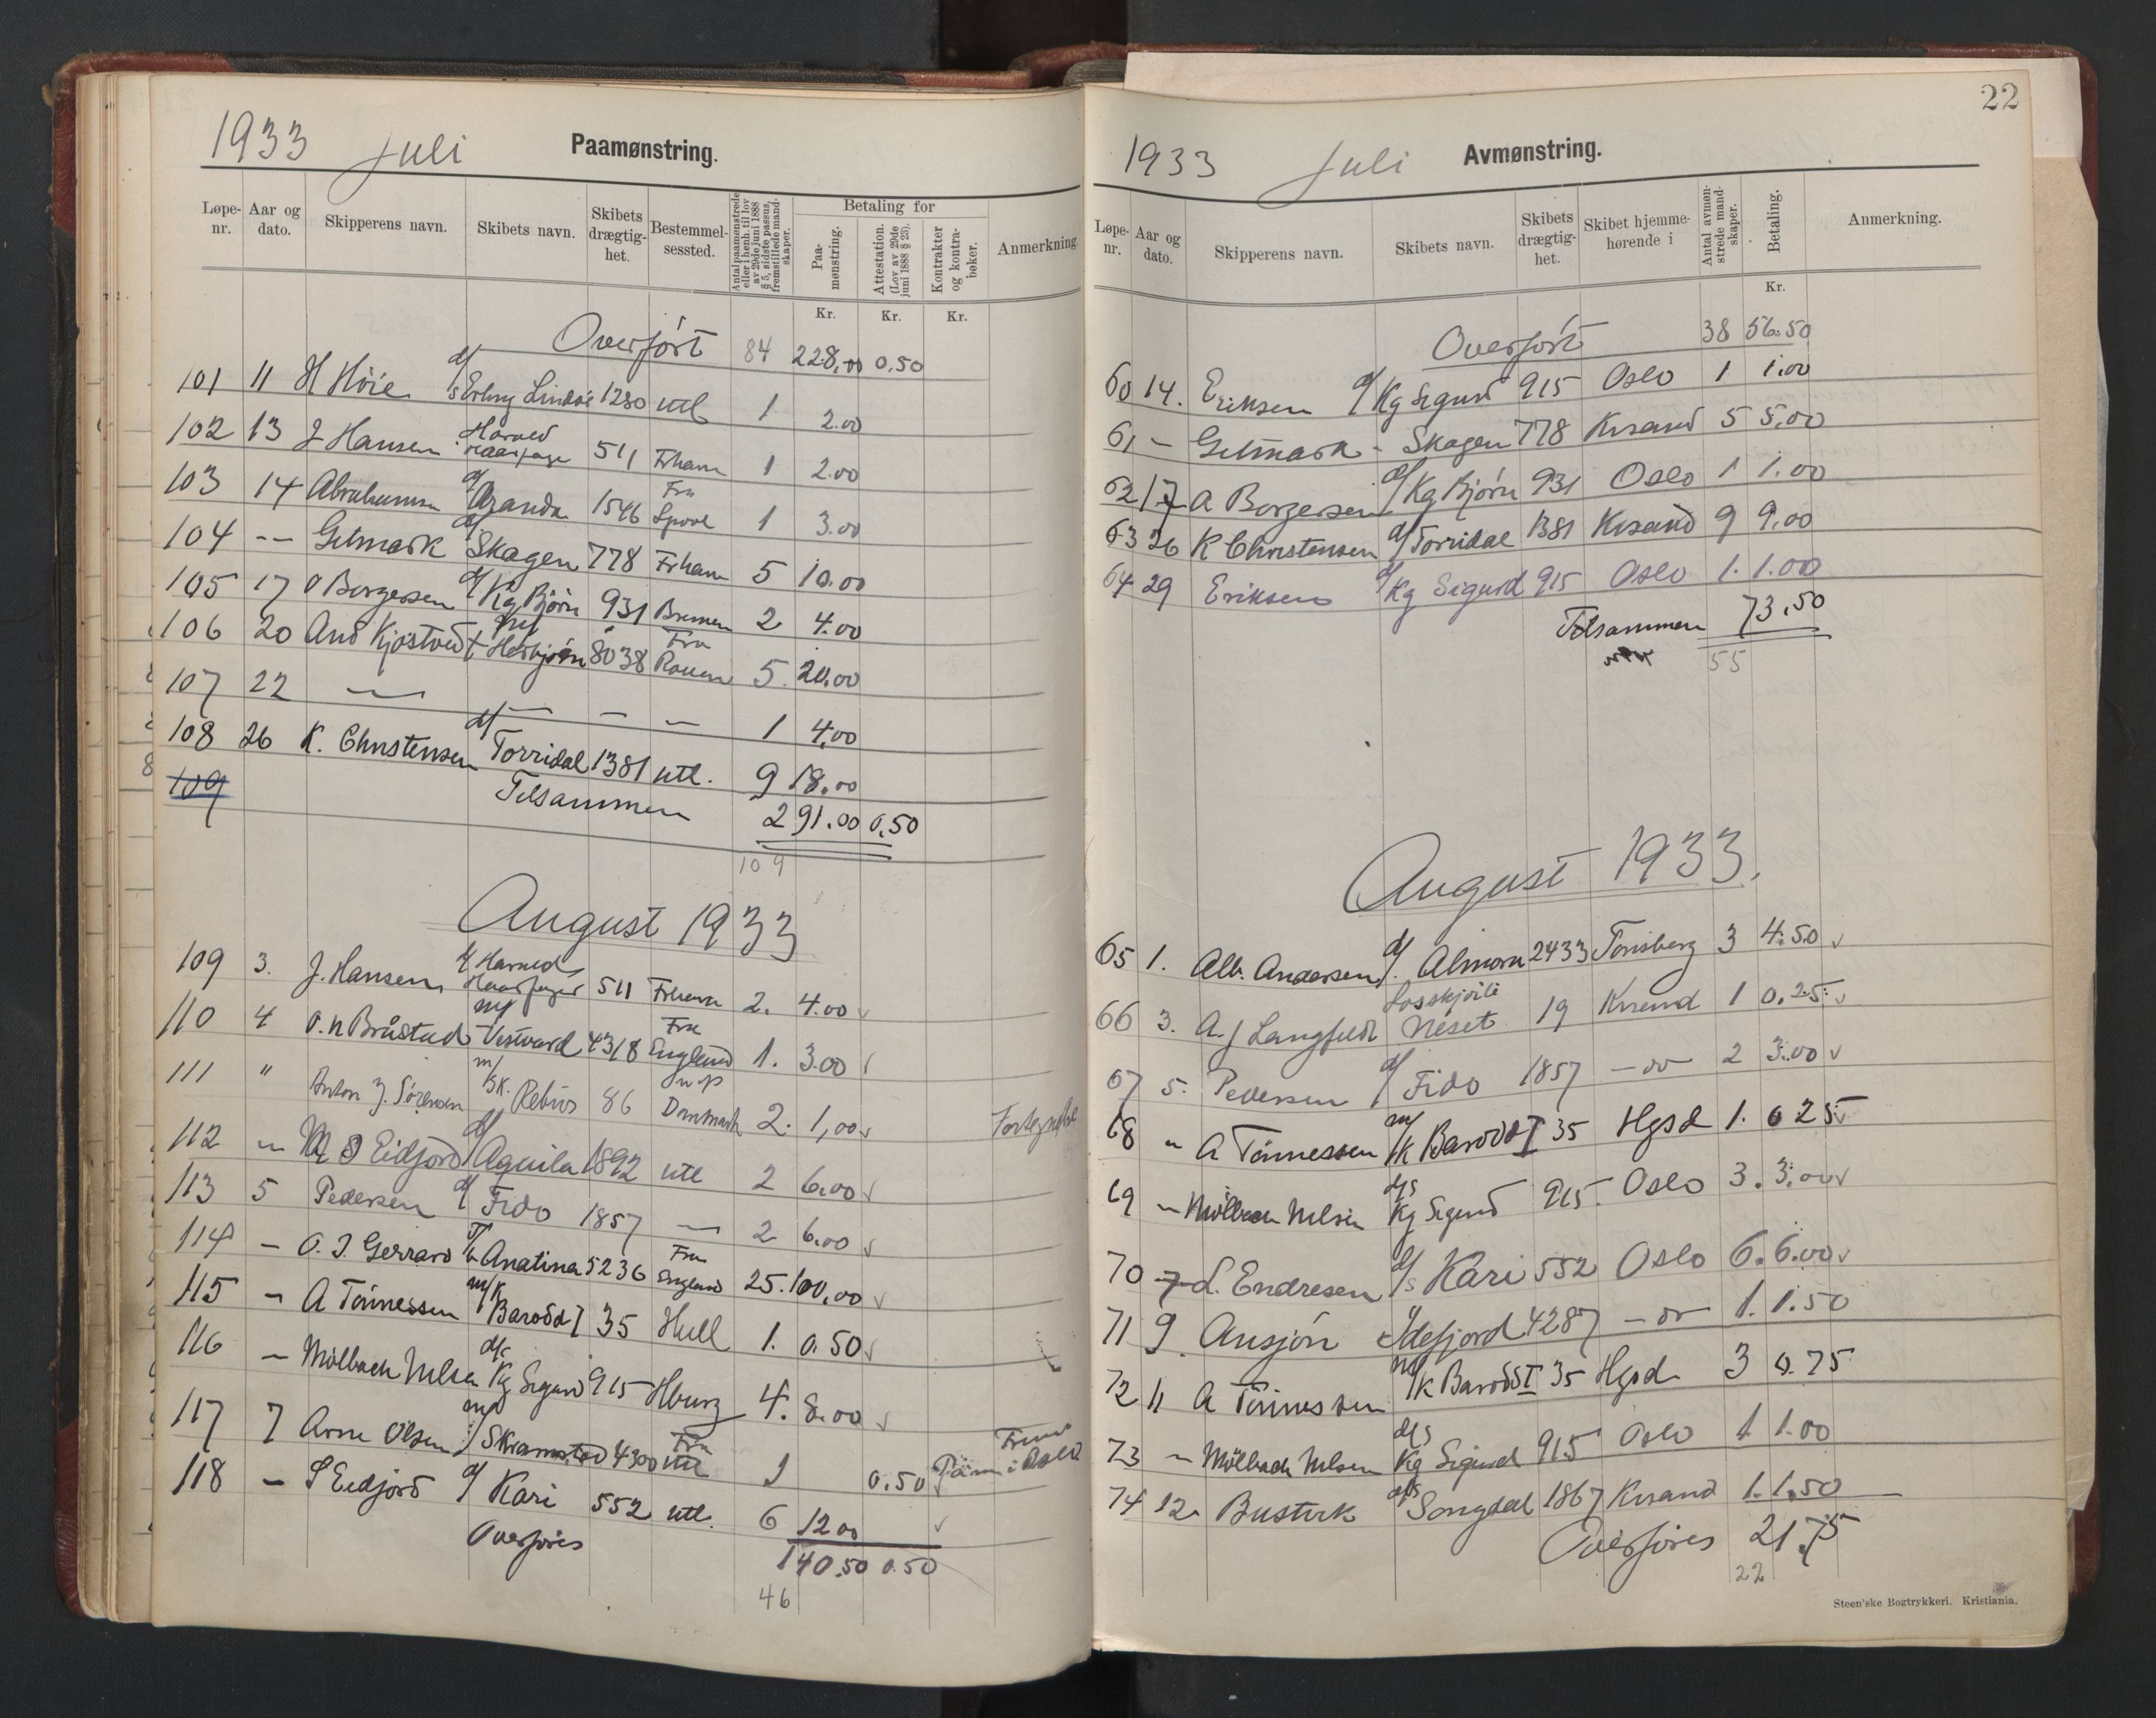 1933 Juli Paamønstring.
Løpe-nr. Aar og dato. Skipperens navn. Skibets navn. Skibets drægtig-het. Bestemmel-sessted. Antal paamønstrede eller i henh. til lov av 29de juni 1888 § 5, sidste passus, fremstillede mand-skaper. Betaling for Paa-mønstring. Attestation. (Lov av 29de juni 1888 § 23). Kontrakter og kontra-bøker. Anmerkning.
Kr. Kr. Kr.
Overført 84 228,00 0,50
101 11 H Høie d/s Erling Lindøe 1280 utl 1 2.00
102 13 J Hansen Harald Haarfager 511 Frhavn 1 2.00
103 14 Abrahamsen d/ Aranda 1546 Fra Lpool 1 3.00
104 -- Gitmark d/ Skagen 778 Frhavn 5 10.00
105 17 O Borgersen d/ Kg Bjørn 931 Bremen 2 4.00
106 20 And Kjöstvedt m/t Herbjörn 8038 Fra Rouen 5. 20.00
107 22 — — — — 1 4,00
108 26 K. Christensen d/ Torridal 1381 utl. 9 18.00
109 Tilsammen 291.00 0.50
109
August 1933
109 3. J. Hansen d/ Harald Haarfager 511 Frhavn 2. 4.00 √
110 4 O. N Bråstad m/ Vestvard 4318 Fra England 1. 3.00 √
111 " Anton J. Sørensen m/sk. Rebus 86 Danmark 2. 1,00 √
112 " M O Eidjord d/ Aquila 1892 utl 2 6.00 √
113 5 Pedersen d/ Fido 1857 — 2 6.00 √
114 — O. J. Gerrard T/ Anatina 5236 Fra England 25. 100,00 √
115 — A Tönnessen m/k Barodd I 35 Hull 1. 0.50 √
116 — Mölbach Nelsen d/s Kg Sigurd 915 Hburg 4. 8.00 √
117 7 Arne Olsen m/ Skramstad 4300 Fra utl 1 0.50 √
118 — S Eidjord d/ Kari 552 utl. 6 12.00 √
Overföres 140.50 0.50
46
22
1933 Juli Avmønstring.
Løpe-nr. Aar og dato. Skipperens navn. Skibets navn. Skibets drægtig-het. Skibet hjemme-hørende i Antal avmøn-strede mand-skaper. Betaling. Anmerkning.
Kr.
Overført 38 56.50
60 14. Eriksen d/ Kg Sigurd 915 Oslo 1 1.00
61 — Gitmark - Skagen 778 Krsand 5 5,00
62 17 A Borgersen d/ Kg Bjørn 931 Oslo 1 1.00
63 26 K Christensen d/ Torridal 1381 Krsand 9 9.00
64 29 Eriksen d/ Kg Sigurd 915 Oslo 1. 1.00
Tilsammen 73.50
55
August 1933.
65 1. Alb. Andersen d/ Almora 2433 Tønsberg 3 4.50 √
66 3. A. J Langfeldt Losskjöite Neset 19 Krsand 1 0.25 √
67 5. Pedersen d/ Fido 1857 — do — 2 3.00 √
68 " A Tönnessen m/k Barodd I 35 Hgsd 1. 0 25 √
69 — Mölbach Nelsen d/s Kg Sigurd 915. Oslo 3. 3.00 √
70 7 L. Endresen d/s Kari 552 Oslo 6. 6.00 √
71 9. Ansjön Idefjord 4287 — do — 1. 1.50
72 11 A Tönnessen m/k Barodd I 35 Hgsd 3 0.75
73 — Mölbach Nelsen d/s Kg Sigurd 915 Oslo 1 1.00
74 12. D/s Songdal 1867 Krsand 1. 1.50
Overföres 21.75
22
Steen'ske Bogtrykkeri. Kristiania.